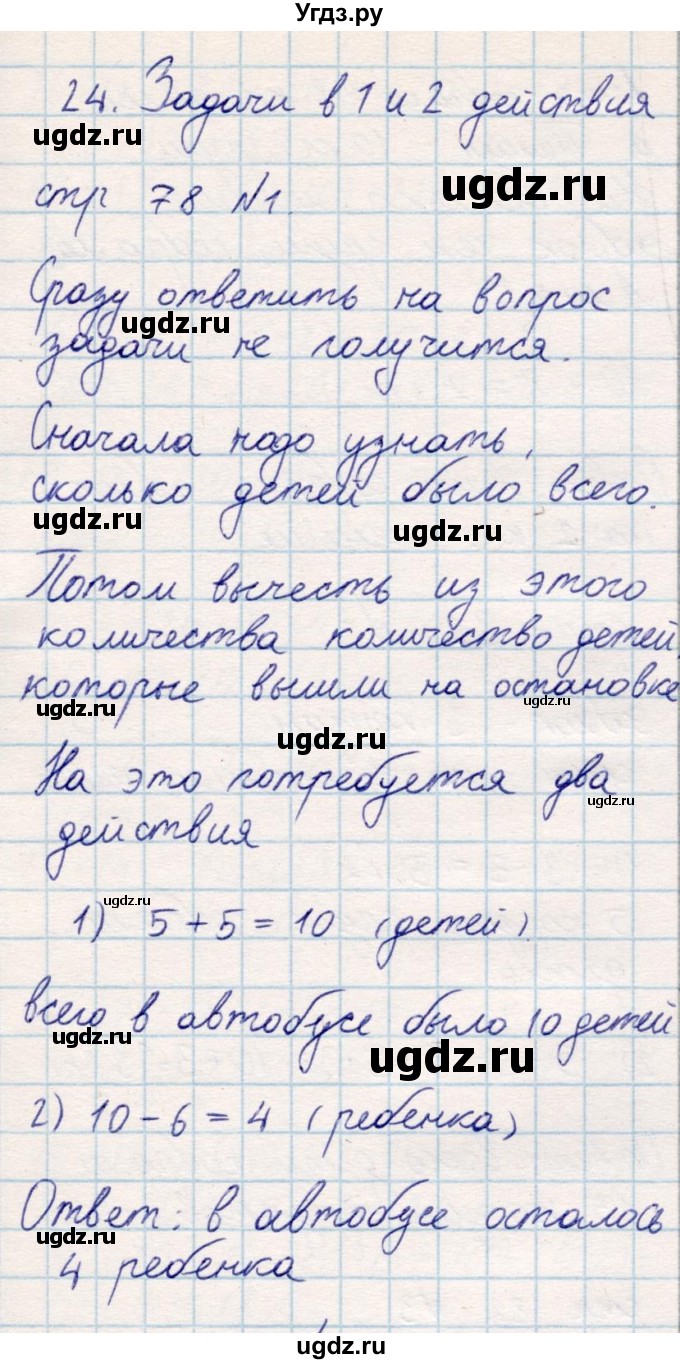 Угдз.ру
24. Задачи в 1 и 2 действия
ugdz.ru
ugdz.ru
стр 78 №1.
Сразу ответить на вопрос
ugdz.ru
задачи не получится.
Сначала надо узнать,
сколько детей было всего.
ugdz.ru
ugdz.ru
Потом вычесть из этого
количества количество детей,
которые вышли на остановке
ugdz.ru
ugdz.ru
ugdz.ru
На это потребуется два
ugdz.ru
действия
ugdz.ru
1) 5+5=10 (детей).
всего в автобусе было 10 детей
ugdz.ru
ugdz.ru
2) 10-6=4 (ребенка)
Ответ: в автобусе осталось
ugdz.ru
4 ребенка
ugdz.ru
ugdz.ru